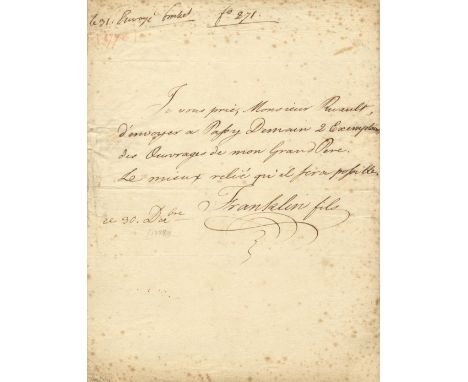 le 31. Envoyé f° 271.
Je vous prie, Monsieur Ruault,
d'envoyer a Passy Demain 2 Exemplaires
des Ouvrages de mon Grand Pere.
Le mieux relié qu'il sera possible.
Franklin fils
ce 30. Dbre